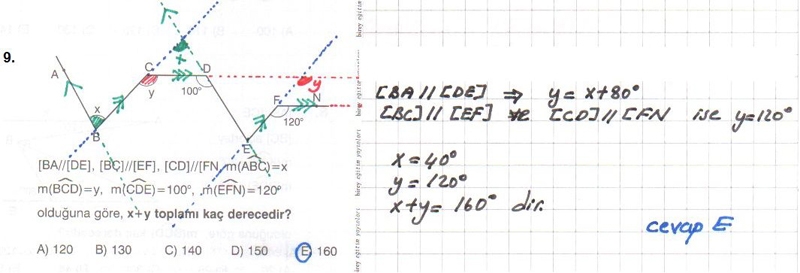 9.
A
C
D
x
y
y
100°
x
B
F
N
120°
E
[BA//[DE], [BC]//[EF], [CD]//[FN, m(ABC)=x
m(BCD)=y, m(CDE)=100°, m(EFN)=120°
olduğuna göre, x+y toplamı kaç derecedir?
A) 120 B) 130 C) 140 D) 150 E) 160
[BA // [DE] ⇒ y = x+80°
[BC] // [EF] ve [CD] // [FN ise y=120°
x = 40°
y = 120°
x+y = 160° dir.
cevap E